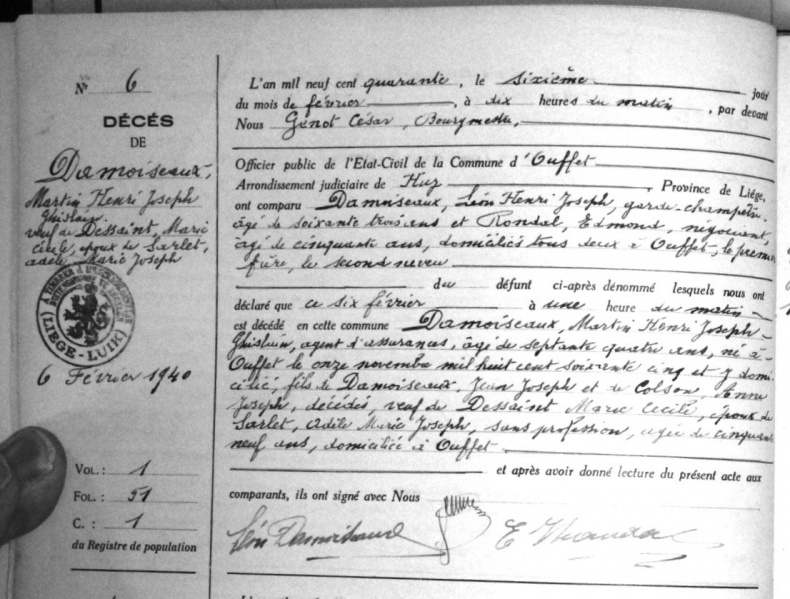 N° 6
DÉCÉS
DE
Damoiseaux,
Martin Henri Joseph
Ghislain
veuf de Dessaint, Marie
Cécile, époux de Sarlet,
Adèle Marie Joseph
(LIEGE-LUIK)
6 Février 1940
VOL. : 1
FOL. : 51
C. : 1
du Registre de population
L'an mil neuf cent quarante, le sixième jour
du mois de février, à dix heures du matin, par devant
Nous Genot César, Bourgmestre,
Officier public de l'Etat-Civil de la Commune d'Ouffet
Arrondissement judiciaire de Huy, Province de Liége,
ont comparu Damoiseaux, Léon Henri Joseph, garde-champêtre,
âgé de soixante trois ans et Rondal, Edmond, négociant,
âgé de cinquante ans, domiciliés tous deux à Ouffet, le premier
frère, le second neveu
du défunt ci-après dénommé lesquels nous ont
déclaré que ce six février à une heure du matin
est décédé en cette commune Damoiseaux, Martin Henri Joseph
Ghislain, agent d'assurances, âgé de septante quatre ans, né à
Ouffet le onze novembre mil huit cent soixante cinq et y domi-
cilié, fils de Damoiseaux, Jean Joseph et de Colson, Anne
Joseph, décédés, veuf de Dessaint Marie Cécile, époux de
Sarlet, Adèle Marie Joseph, sans profession, âgée de cinquante
neuf ans, domiciliée à Ouffet
et après avoir donné lecture du présent acte aux
comparants, ils ont signé avec Nous
Léon Damoiseaux